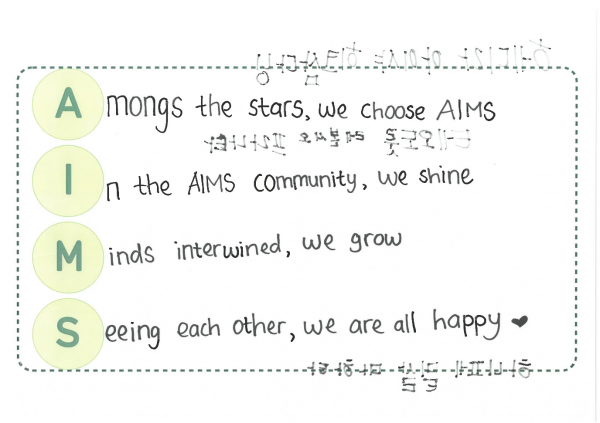 Amongs the stars, we choose AIMS
In the AIMS community, we shine
Minds interwined, we grow
Seeing each other, we are all happy ❤